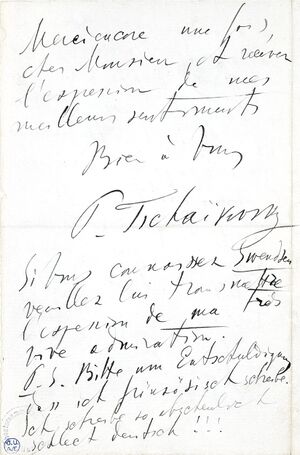 Merci encore une fois
cher Monsieur, et recevez
l'expression de mes
meilleurs sentiments
Bien à Vous
P. Tschaïkovsky
Si Vous connaissez Swendsen
veuillez lui transmettre
l'expression de ma très
vive admiration.
P.S. Bitte um Entschuldigung
dass ich französisch schreibe.
Ich schreibe so abscheulich
schlecht deutsch!!!